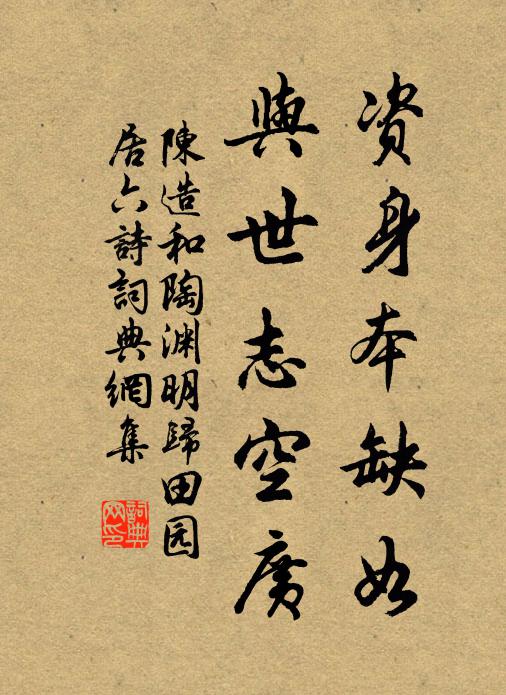 資身本缺如
與世志空廣
陳造和陶渊明歸田园
居六詩詞典網集
詞典
网印